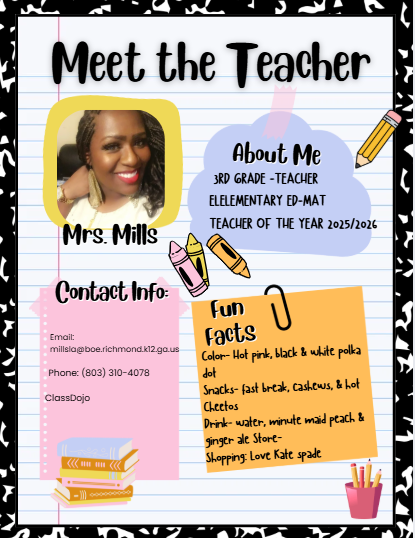 Meet the Teacher
About Me
3RD GRADE -TEACHER
ELELEMENTARY ED-MAT
TEACHER OF THE YEAR 2025/2026
Mrs. Mills
Contact Info:
Email:
millsla@boe.richmond.k12.ga.us
Phone: (803) 310-4078
ClassDojo
Fun
Facts
Color- Hot pink, black & white polka
dot
Snacks- fast break, cashews, & hot
Cheetos
Drink- water, minute maid peach &
ginger ale Store-
Shopping: Love Kate spade